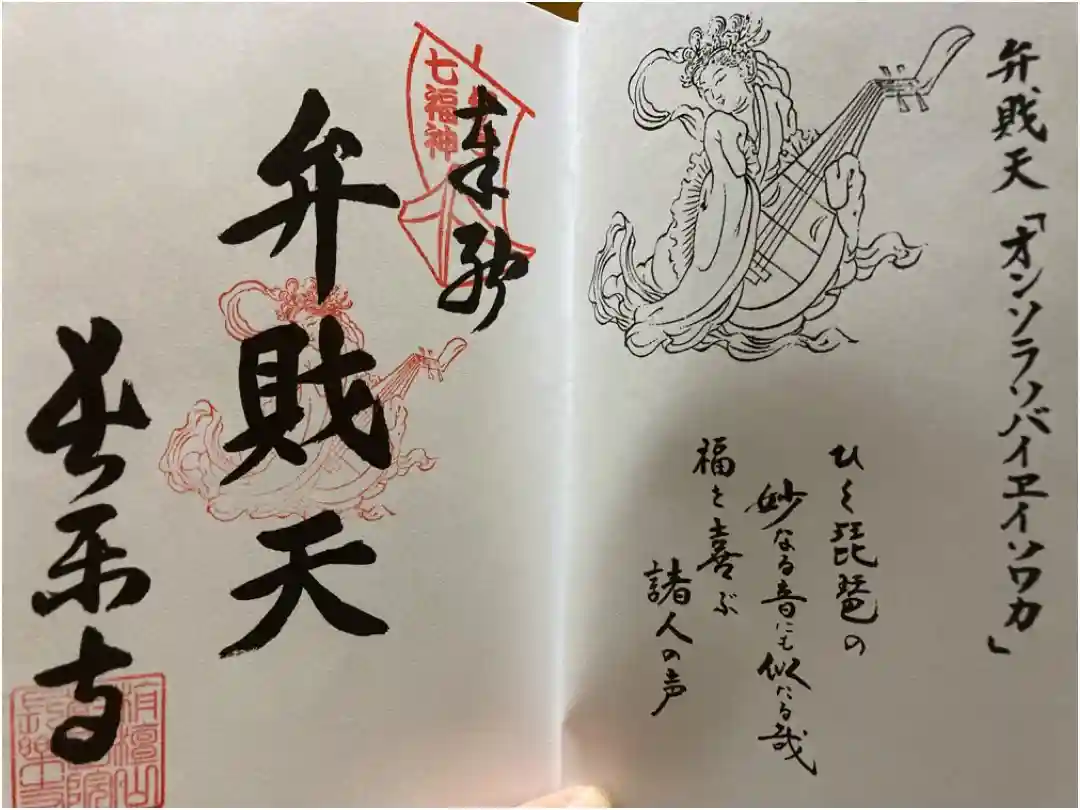 弁財天「オンソラソバイヱイソワカ」
ひく琵琶の
妙なる音にも似たる哉
福を喜ぶ
諸人の声
奉拝
七福神
弁財天
長楽寺